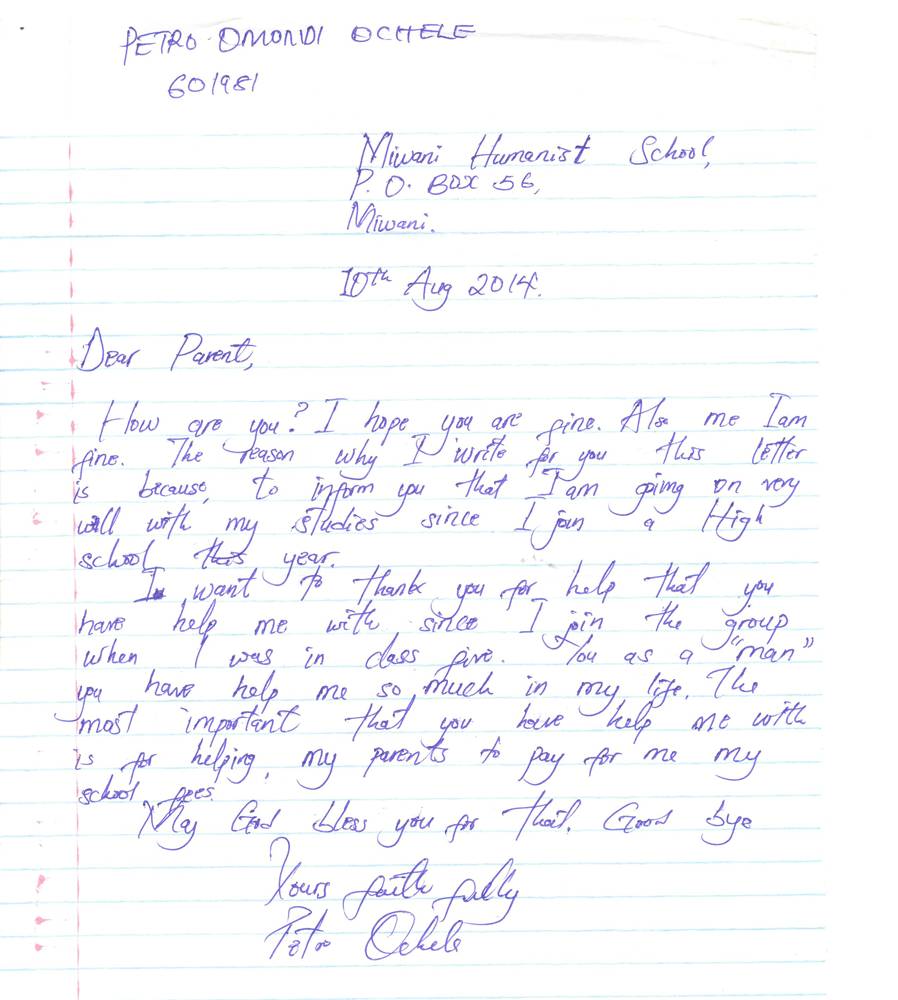 PETRO OMONDI OCHELE
601981
Miwani Humanist School,
P. O. BOX 56,
Miwani.
10th Aug 2014.
Dear Parent,
How are you? I hope you are fine. Also me I am
fine. The reason why I write for you this letter
is because, to inform you that I am going on very
well with my studies since I join a High
school this year.
I want to thank you for help that you
have help me with since I join the group
when I was in class five. You as a "man"
you have help me so much in my life. The
most important that you have help me with
is for helping my parents to pay for me my
school fees.
May God bless you for that. Good bye
Yours faith fully
Petro Ochele